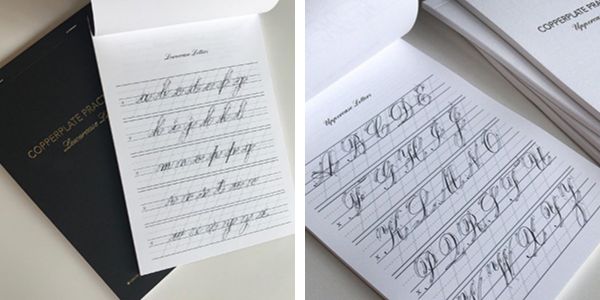 COPPERPLATE PRACT
Lowercase Le
Lowercase Letters
a b c d e f g
h i j k k l
m n o p p q
COPPERPLATE PRA
Uppercase
Uppercase Letters
A B C D E
F G H I J
K L M N O
P Q R S T U
V W X Y Z